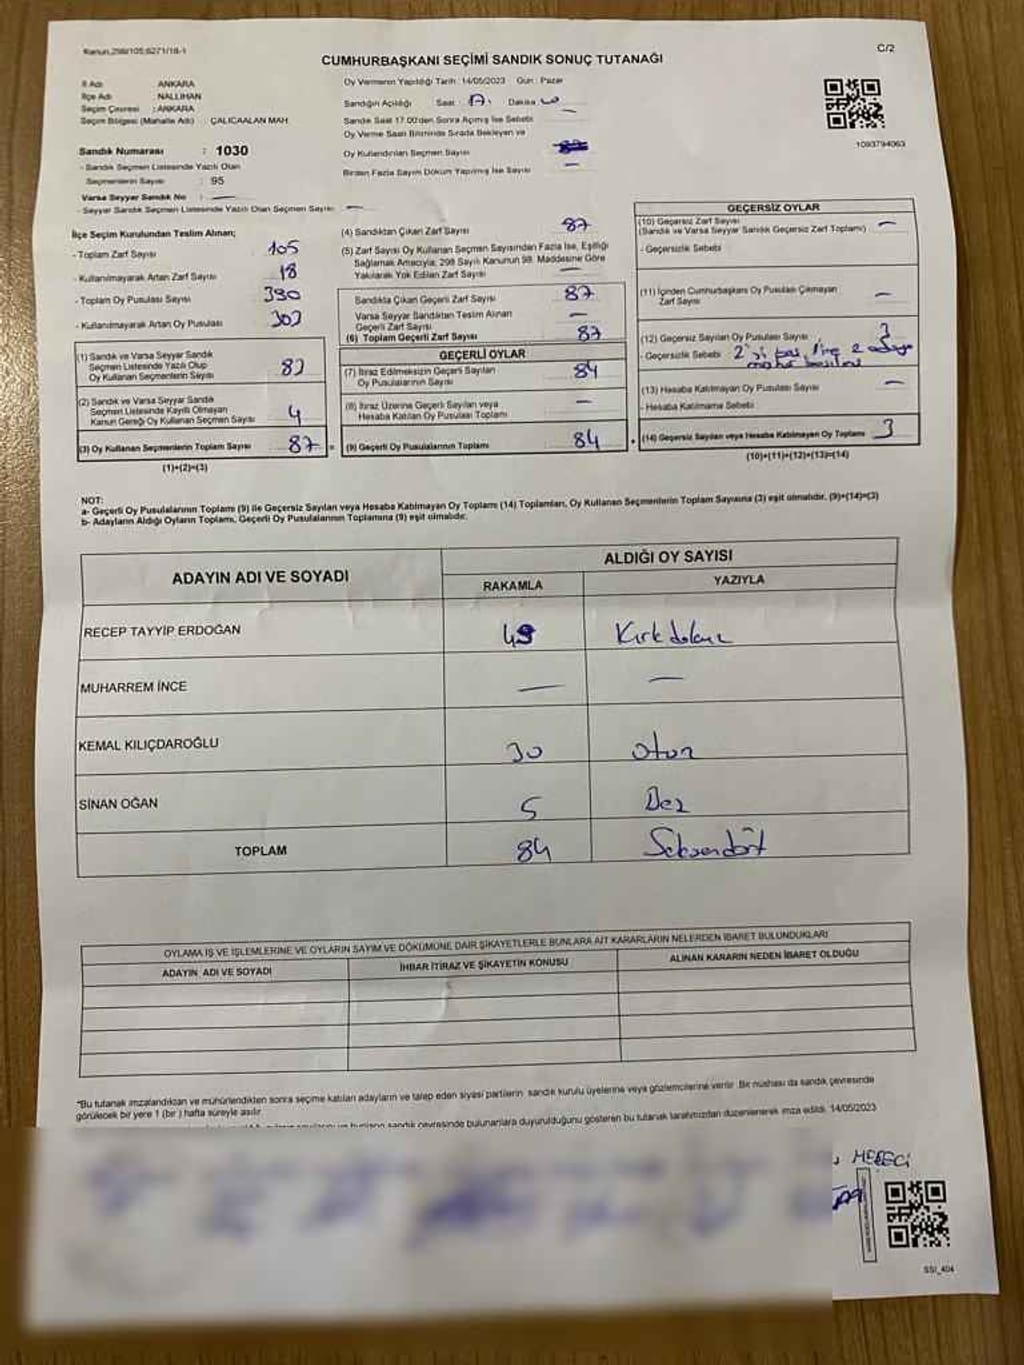 Kanun.298/105;6271/18-1
C/2
CUMHURBAŞKANI SEÇİMİ SANDIK SONUÇ TUTANAĞI
İl Adı : ANKARA
İlçe Adı : NALLIHAN
Seçim Çevresi : ANKARA
Seçim Bölgesi (Mahalle Adı) : ÇALICAALAN MAH.
Sandık Numarası : 1030
- Sandık Seçmen Listesinde Yazılı Olan
Seçmenlerin Sayısı : 95
Varsa Seyyar Sandık No : —
- Seyyar Sandık Seçmen Listesinde Yazılı Olan Seçmen Sayısı : —
Oy Vermenin Yapıldığı Tarih : 14/05/2023 Gün : Pazar
Sandığın Açıldığı Saat : 17 Dakika
Sandık Saat 17.00'den Sonra Açılmış İse Sebebi
Oy Verme Saati Bitiminde Sırada Bekleyen ve
Oy Kullandırılan Seçmen Sayısı
Birden Fazla Sayım Döküm Yapılmış İse Sayısı —
1093794063
İlçe Seçim Kurulundan Teslim Alınan;
- Toplam Zarf Sayısı 105
- Kullanılmayarak Artan Zarf Sayısı 18
- Toplam Oy Pusulası Sayısı 390
- Kullanılmayarak Artan Oy Pusulası 303
(1) Sandık ve Varsa Seyyar Sandık
Seçmen Listesinde Yazılı Olup
Oy Kullanan Seçmenlerin Sayısı 83
(2) Sandık ve Varsa Seyyar Sandık
Seçmen Listesinde Kayıtlı Olmayan
Kanun Gereği Oy Kullanan Seçmen Sayısı 4
(3) Oy Kullanan Seçmenlerin Toplam Sayısı 87
(1)+(2)=(3)
(4) Sandıktan Çıkan Zarf Sayısı 87
(5) Zarf Sayısı Oy Kullanan Seçmen Sayısından Fazla İse, Eşitliği
Sağlamak Amacıyla; 298 Sayılı Kanunun 98. Maddesine Göre
Yakılarak Yok Edilen Zarf Sayısı —
Sandıkta Çıkan Geçerli Zarf Sayısı 87
Varsa Seyyar Sandıktan Teslim Alınan
Geçerli Zarf Sayısı —
(6) Toplam Geçerli Zarf Sayısı 87
GEÇERLİ OYLAR
(7) İtiraz Edilmeksizin Geçerli Sayılan
Oy Pusulalarının Sayısı 84
(8) İtiraz Üzerine Geçerli Sayılan veya
Hesaba Katılan Oy Pusulası Toplamı —
(9) Geçerli Oy Pusulalarının Toplamı 84
GEÇERSİZ OYLAR
(10) Geçersiz Zarf Sayısı
(Sandık ve Varsa Seyyar Sandık Geçersiz Zarf Toplamı) —
- Geçersizlik Sebebi
(11) İçinden Cumhurbaşkanı Oy Pusulası Çıkmayan
Zarf Sayısı —
(12) Geçersiz Sayılan Oy Pusulası Sayısı 3
- Geçersizlik Sebebi 2'si boş, 1'ine 2 adaya
(13) Hesaba Katılmayan Oy Pusulası Sayısı —
- Hesaba Katılmama Sebebi
(14) Geçersiz Sayılan veya Hesaba Katılmayan Oy Toplamı 3
(10)+(11)+(12)+(13)=(14)
NOT:
a- Geçerli Oy Pusulalarının Toplamı (9) ile Geçersiz Sayılan veya Hesaba Katılmayan Oy Toplamı (14) Toplamları, Oy Kullanan Seçmenlerin Toplam Sayısına (3) eşit olmalıdır. (9)+(14)=(3)
b- Adayların Aldığı Oyların Toplamı, Geçerli Oy Pusulalarının Toplamına (9) eşit olmalıdır.
ADAYIN ADI VE SOYADI
ALDIĞI OY SAYISI
RAKAMLA YAZIYLA
RECEP TAYYİP ERDOĞAN 49 Kırkdokuz
MUHARREM İNCE — —
KEMAL KILIÇDAROĞLU 30 Otuz
SİNAN OĞAN 5 Beş
TOPLAM 84 Seksendört
OYLAMA İŞ VE İŞLEMLERİNE VE OYLARIN SAYIM VE DÖKÜMÜNE DAİR ŞİKAYETLERLE BUNLARA AİT KARARLARIN NELERDEN İBARET BULUNDUKLARI
ADAYIN ADI VE SOYADI İHBAR İTİRAZ VE ŞİKAYETİN KONUSU ALINAN KARARIN NEDEN İBARET OLDUĞU
"Bu tutanak imzalandıktan ve mühürlendikten sonra seçime katılan adayların ve talep eden siyasi partilerin sandık kurulu üyelerine veya gözlemcilerine verilir. Bir nüshası da sandık çevresinde
görülecek bir yere 1 (bir ) hafta süreyle asılır.
sandık çevresinde bulunanlara duyurulduğunu gösteren bu tutanak tarafımızdan düzenlenerek imza edildi. 14/05/2023
SSI_404